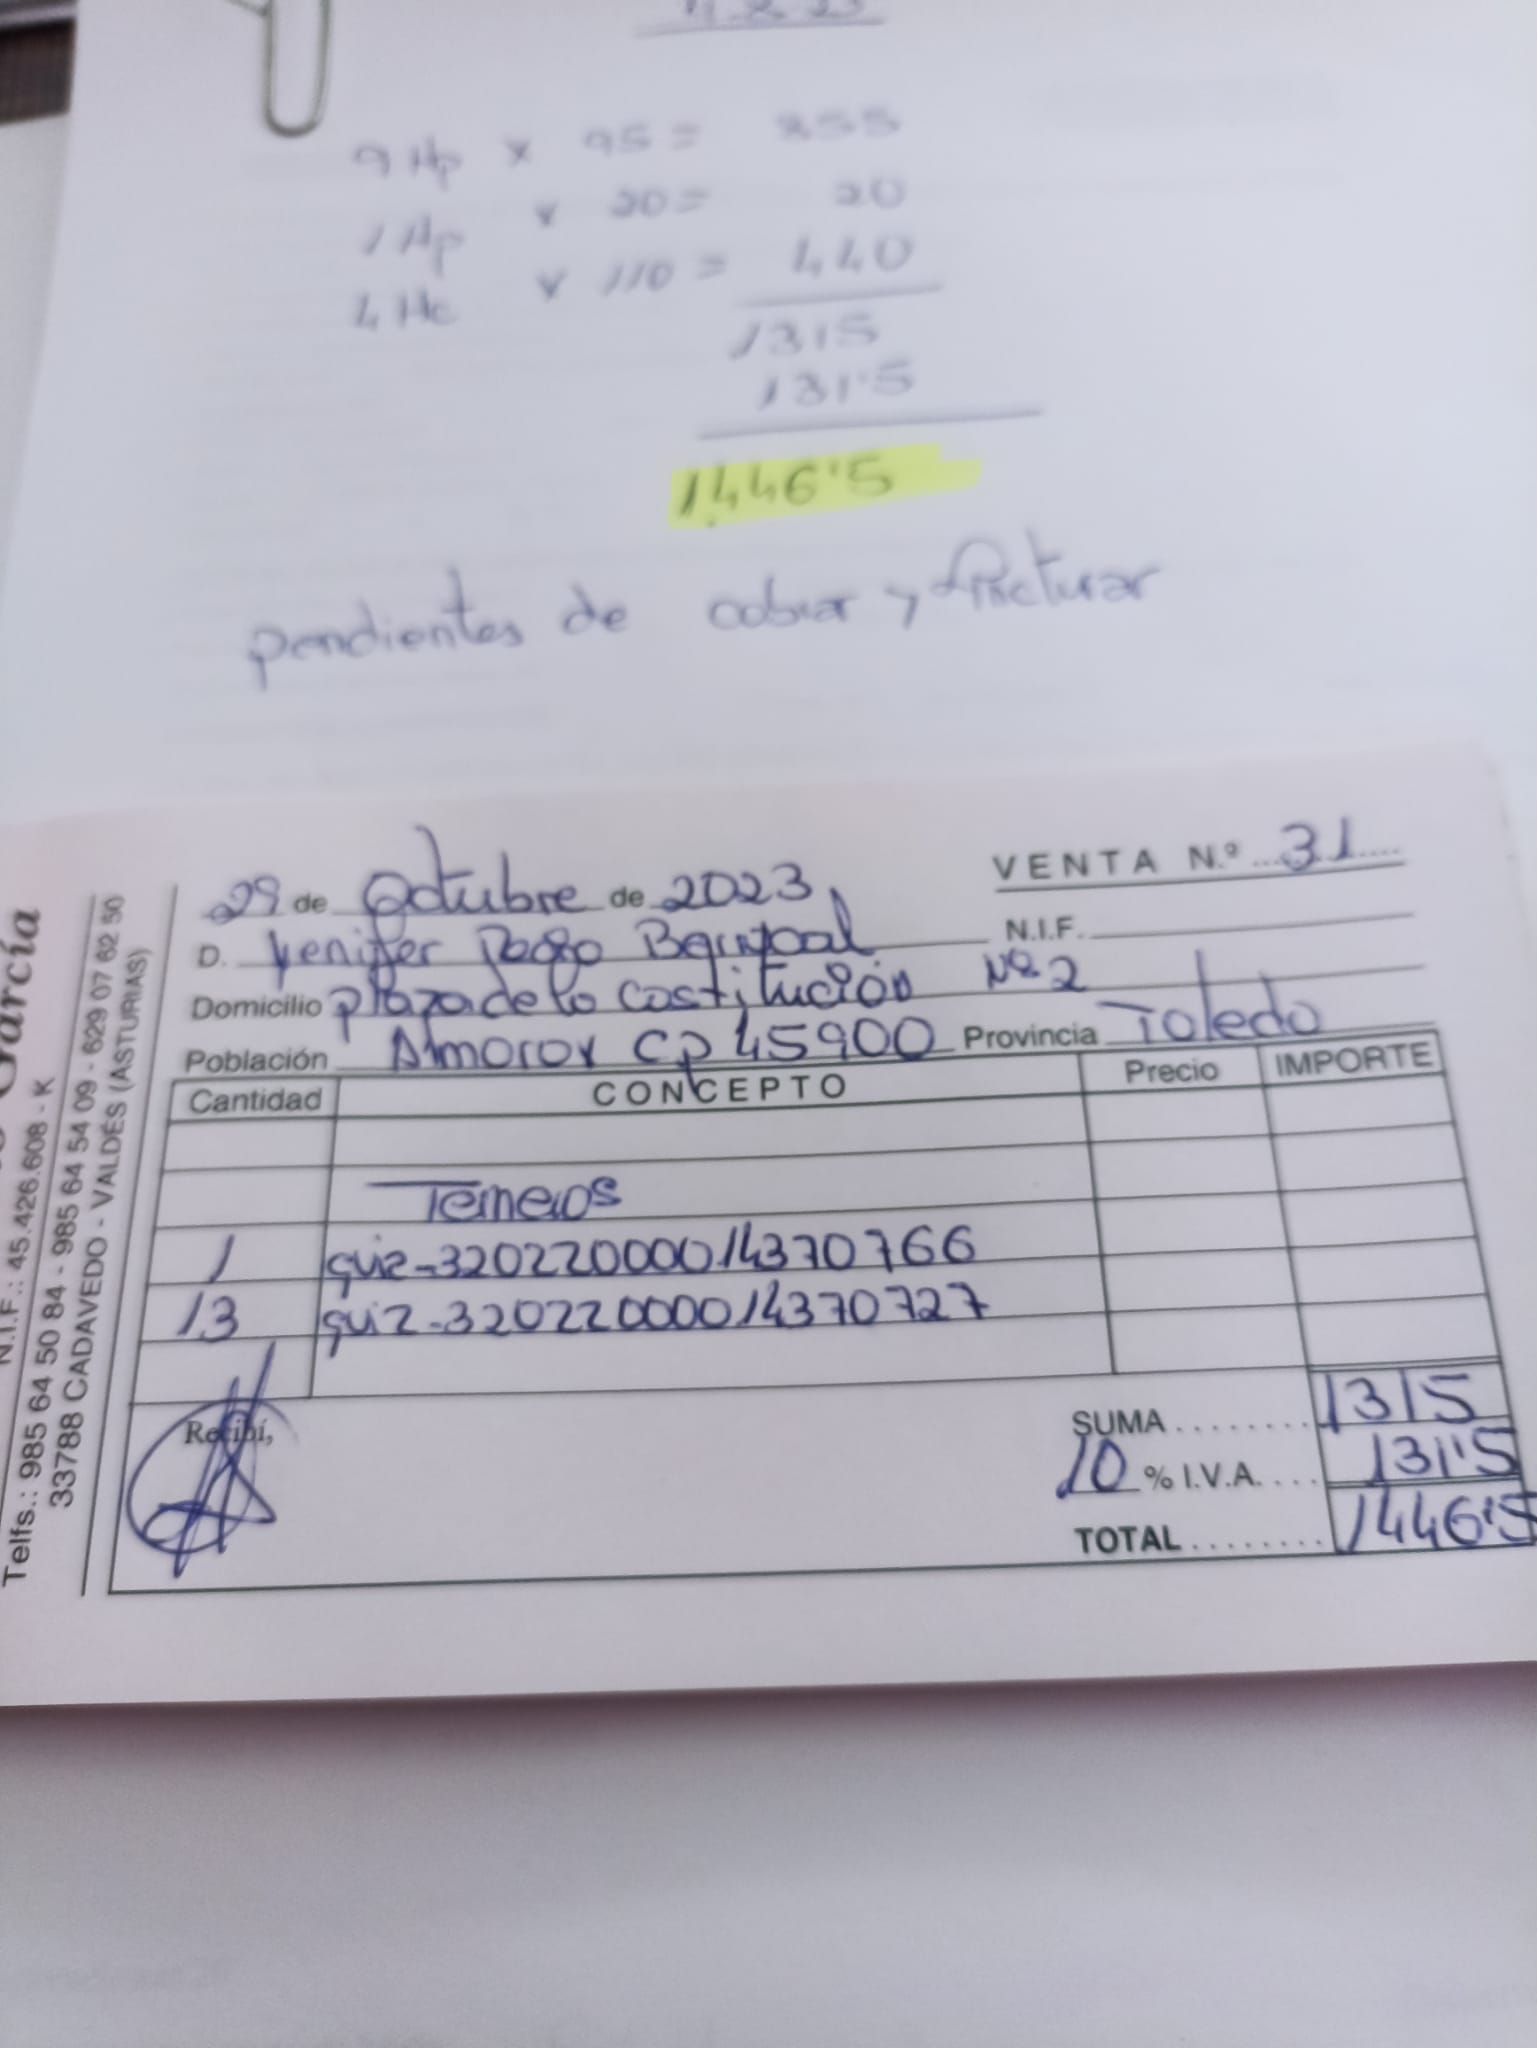 9 Hp x 95 = 855
1 Hp x 20 = 20
4 Hc x 110 = 440
1315
131'5
1446'5
pendientes de cobrar y facturar
García
N.I.F.: 45.426.608 - K
Telfs.: 985 64 50 84 - 985 64 54 09 - 629 07 62 50
33788 CADAVEDO - VALDÉS (ASTURIAS)
29 de Octubre de 2023
VENTA N.º 31
D. Yenifer
N.I.F.
Domicilio plaza de la costitución Nº 2
Población Almorox CP 45900 Provincia Toledo
Cantidad CONCEPTO Precio IMPORTE
Terneros
1 guia-32022000014370766
13 guia-32022000014370727
Recibí,
SUMA 1315
10 % I.V.A. 131'5
TOTAL 1446'5